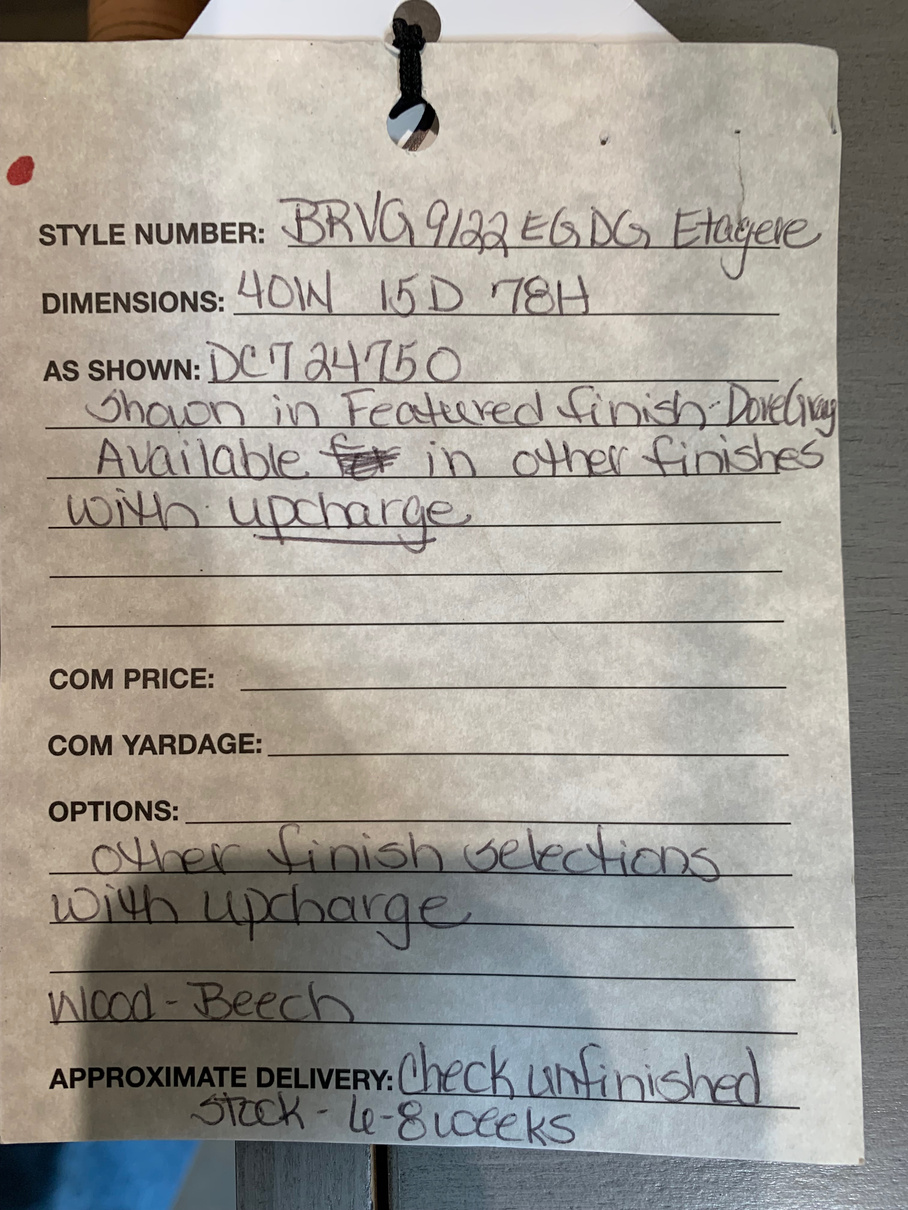 STYLE NUMBER: BRVG 9122 EG DG Etagere
DIMENSIONS: 40W 15D 78H
AS SHOWN: DC724750
Shown in Featured finish-Dove Gray
Available in other finishes
with upcharge
COM PRICE:
COM YARDAGE:
OPTIONS:
other finish selections
with upcharge
Wood - Beech
APPROXIMATE DELIVERY: Check unfinished
Stock - 6-8 weeks